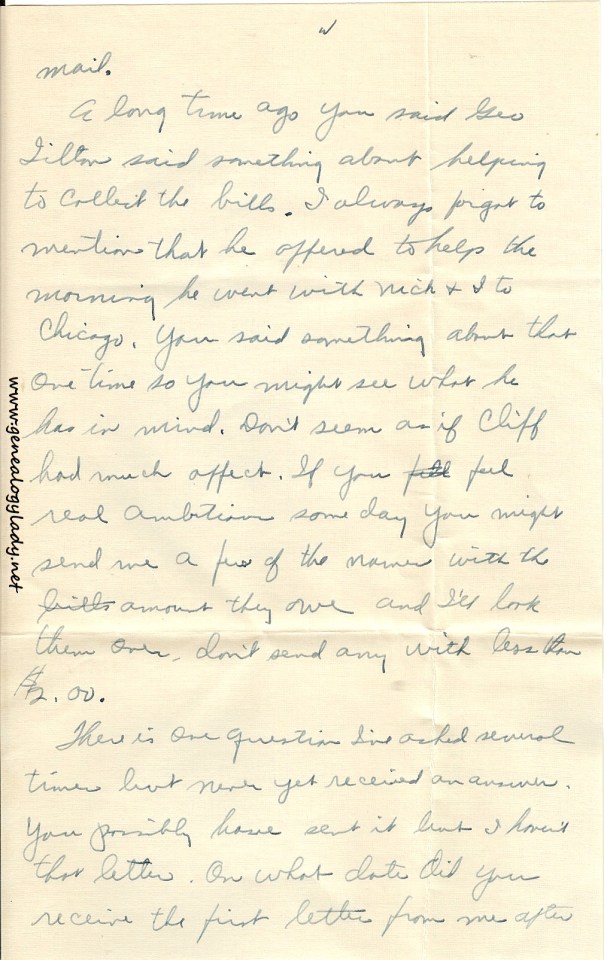 mail.
A long time ago you said Geo
Tilton said something about helping
to collect the bills. I always forgot to
mention that he offered to help the
morning he went with Nick & I to
Chicago. You said something about that
one time so you might see what he
has in mind. Don't seem as if Cliff
had much affect. If you feel
real ambitious some day you might
send me a few of the names with the
bills amount they owe and I'll look
them over, don't send any with less than
$2.00.
There is one question I've asked several
times but never yet received an answer.
You possibly have sent it but I haven't
that letter. On what date did you
receive the first letter from me after
www.genealogylady.net